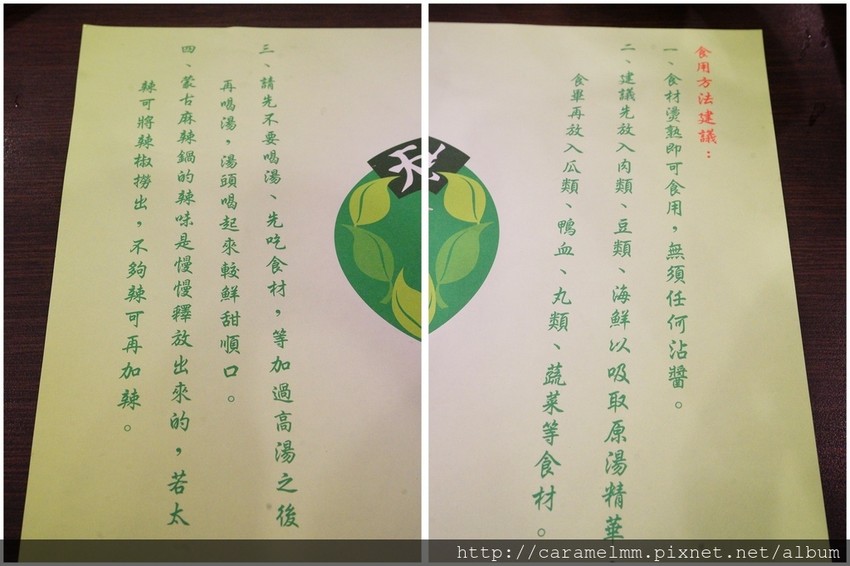 食用方法建議：
一、食材燙熟即可食用，無須任何沾醬。
二、建議先放入肉類、豆類、海鮮以吸取原湯精華，
食畢再放入瓜類、鴨血、丸類、蔬菜等食材。
三、請先不要喝湯、先吃食材，等加過高湯之後
再喝湯，湯頭喝起來較鮮甜順口。
四、蒙古麻辣鍋的辣味是慢慢釋放出來的，若太
辣可將辣椒撈出，不夠辣可再加辣。
http://caramelmm.pixnet.net/album